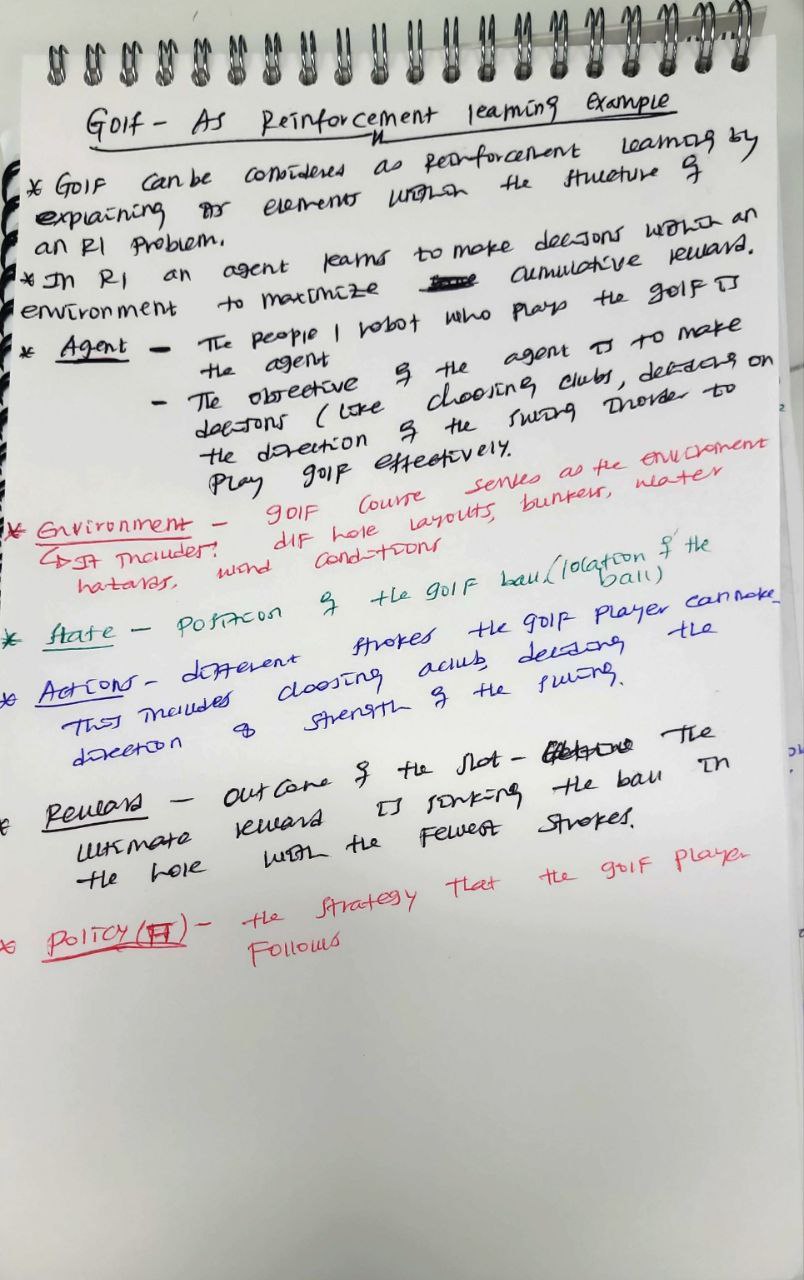 Golf - As Reinforcement learning Example
* Golf can be considered as Reinforcement Learning by
explaining its elements within the structure of
an Rl Problem.
* In Rl an agent learns to make decisions within an
environment to maximize cumulative reward.
* Agent - The people / robot who plays the golf is
the agent
- The objective of the agent is to make
decisions (like choosing clubs, deciding on
the direction of the swing inorder to
Play golf effectively.
* Environment - golf Course serves as the environment
↳ It includes: dif hole layouts, bunkers, water
hazards, wind conditions
* State - Position of the golf ball (location of the
ball)
* Actions - different strokes the golf player can make.
This includes choosing a club, deciding the
direction & strength of the swing.
* Reward - outcome of the shot - The
ultimate reward is sinking the ball in
the hole with the Fewest Strokes.
* Policy (π) - the strategy that the golf player
Follows